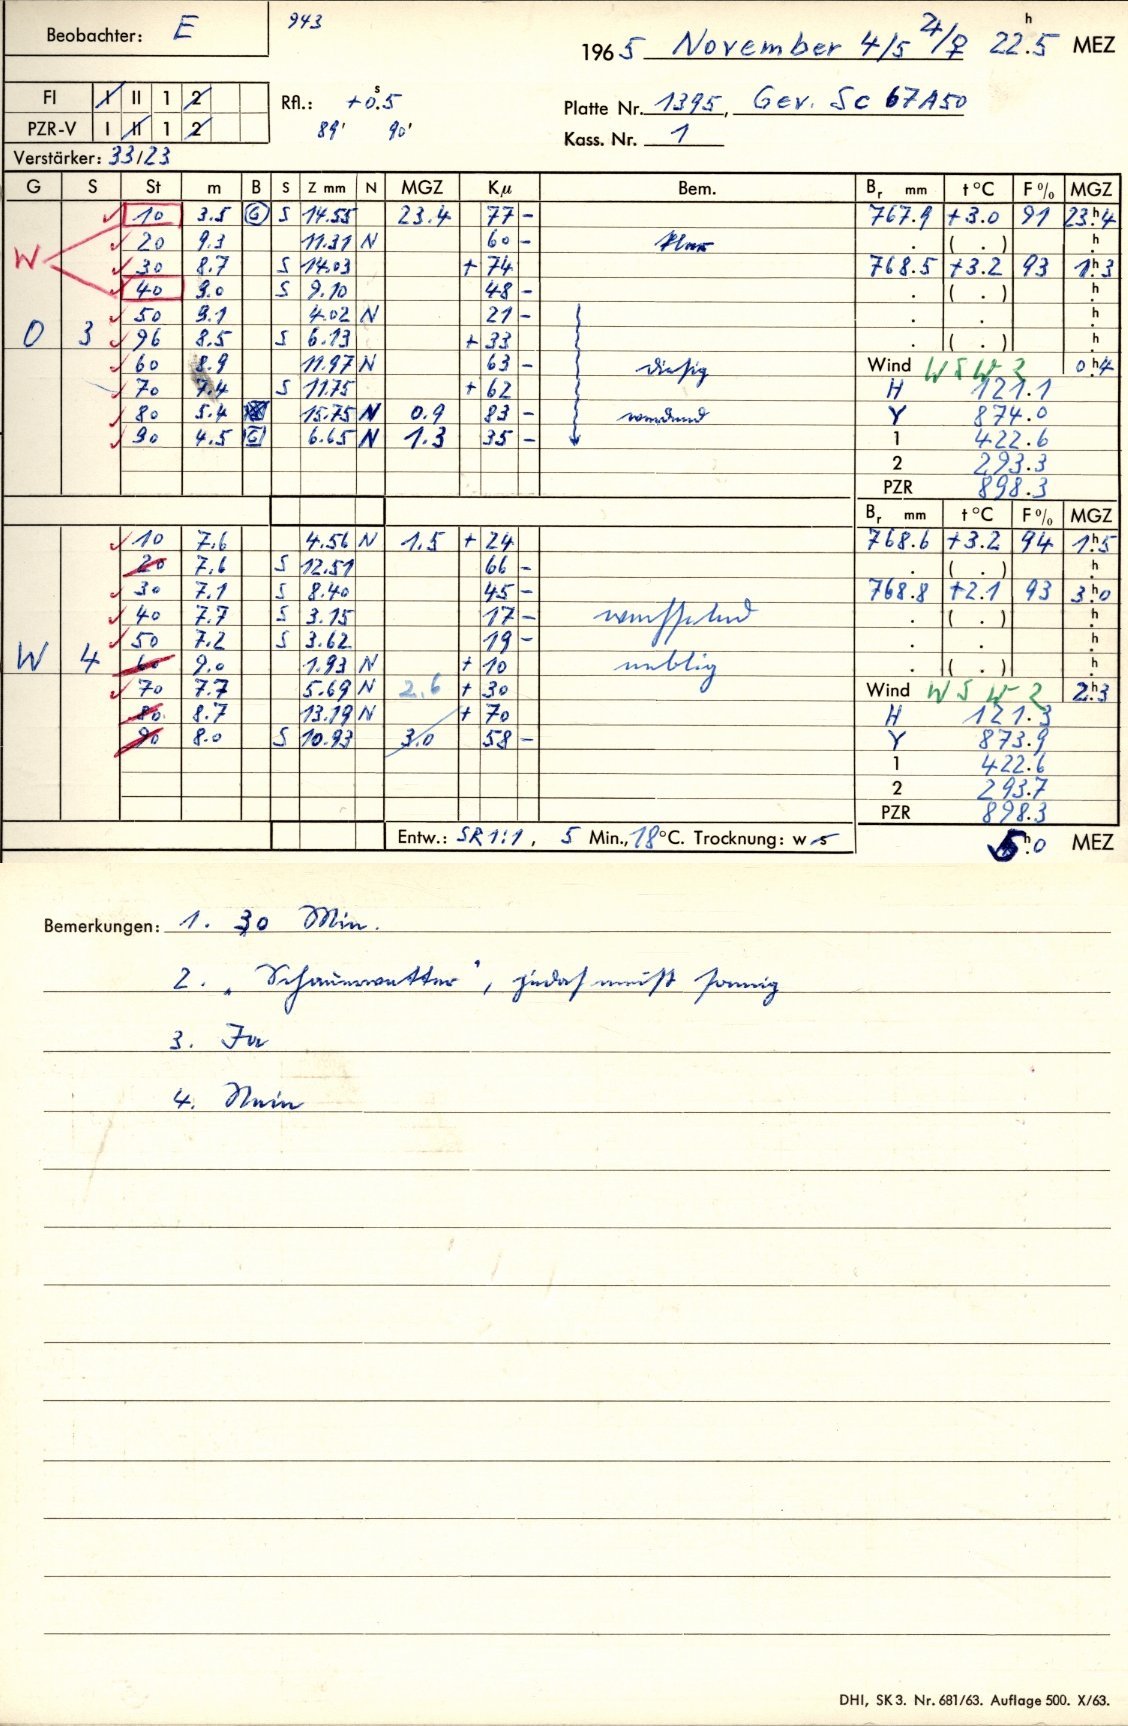 Beobachter: E 943
1965 November 4/5 ♃/♀ 22.5 h MEZ
FI I II 1 2
PZR-V I II 1 2
Rfl.: +0.5 s
89' 90'
Platte Nr. 1395, Gev. Sc 67A50
Kass. Nr. 1
Verstärker: 33/23
G S St m B S Z mm N MGZ Kμ Bem. Br mm t °C F % MGZ
10 3.5 G S 14.55 23.4 77 – 767.9 +3.0 91 23.h4
20 9.3 11.31 N 60 – klar . ( . ) h
W 30 8.7 S 14.03 + 74 768.5 +3.2 93 1.h3
40 9.0 S 9.10 48 – . ( . ) h
50 9.1 4.02 N 21 – . . h
O 3 96 8.5 S 6.13 + 33 . ( . ) h
60 8.9 11.97 N 63 – diesig Wind WSW 2 0.h4
70 7.4 S 11.75 + 62 H 121.1
80 5.4 15.75 N 0.9 83 – werdend Y 874.0
90 4.5 G 6.65 N 1.3 35 – 1 422.6
2 293.3
PZR 898.3
Br mm t °C F % MGZ
10 7.6 4.56 N 1.5 + 24 768.6 +3.2 94 1.h5
20 7.6 S 12.51 66 – . ( . ) h
30 7.1 S 8.40 45 – 768.8 +2.1 93 3.h0
40 7.7 S 3.15 17 – wechselnd . ( . ) h
50 7.2 S 3.62 19 – . . h
W 4 60 9.0 1.93 N + 10 neblig . ( . ) h
70 7.7 5.69 N 2.6 + 30 Wind WSW 2 2.h3
80 8.7 13.19 N + 70 H 121.3
90 8.0 S 10.93 3.0 58 – Y 873.9
1 422.6
2 293.7
PZR 898.3
Entw.: SR 1:1, 5 Min., 18 °C. Trocknung: w s 5.h0 MEZ
Bemerkungen: 1. 30 Min.
2. „Schauerwetter", jedoch meist sonnig
3. Ja
4. Nein
DHI, SK 3. Nr. 681/63. Auflage 500. X/63.